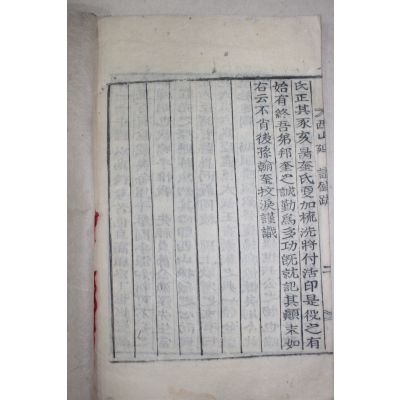 西山 譜
二
氏正其豕亥 奎氏更加梳洗將付活印是役之有
始有終吾弟邦奎之誠勤爲多功旣就記其顚末如
右云不肖後孫翰奎抆淚謹識